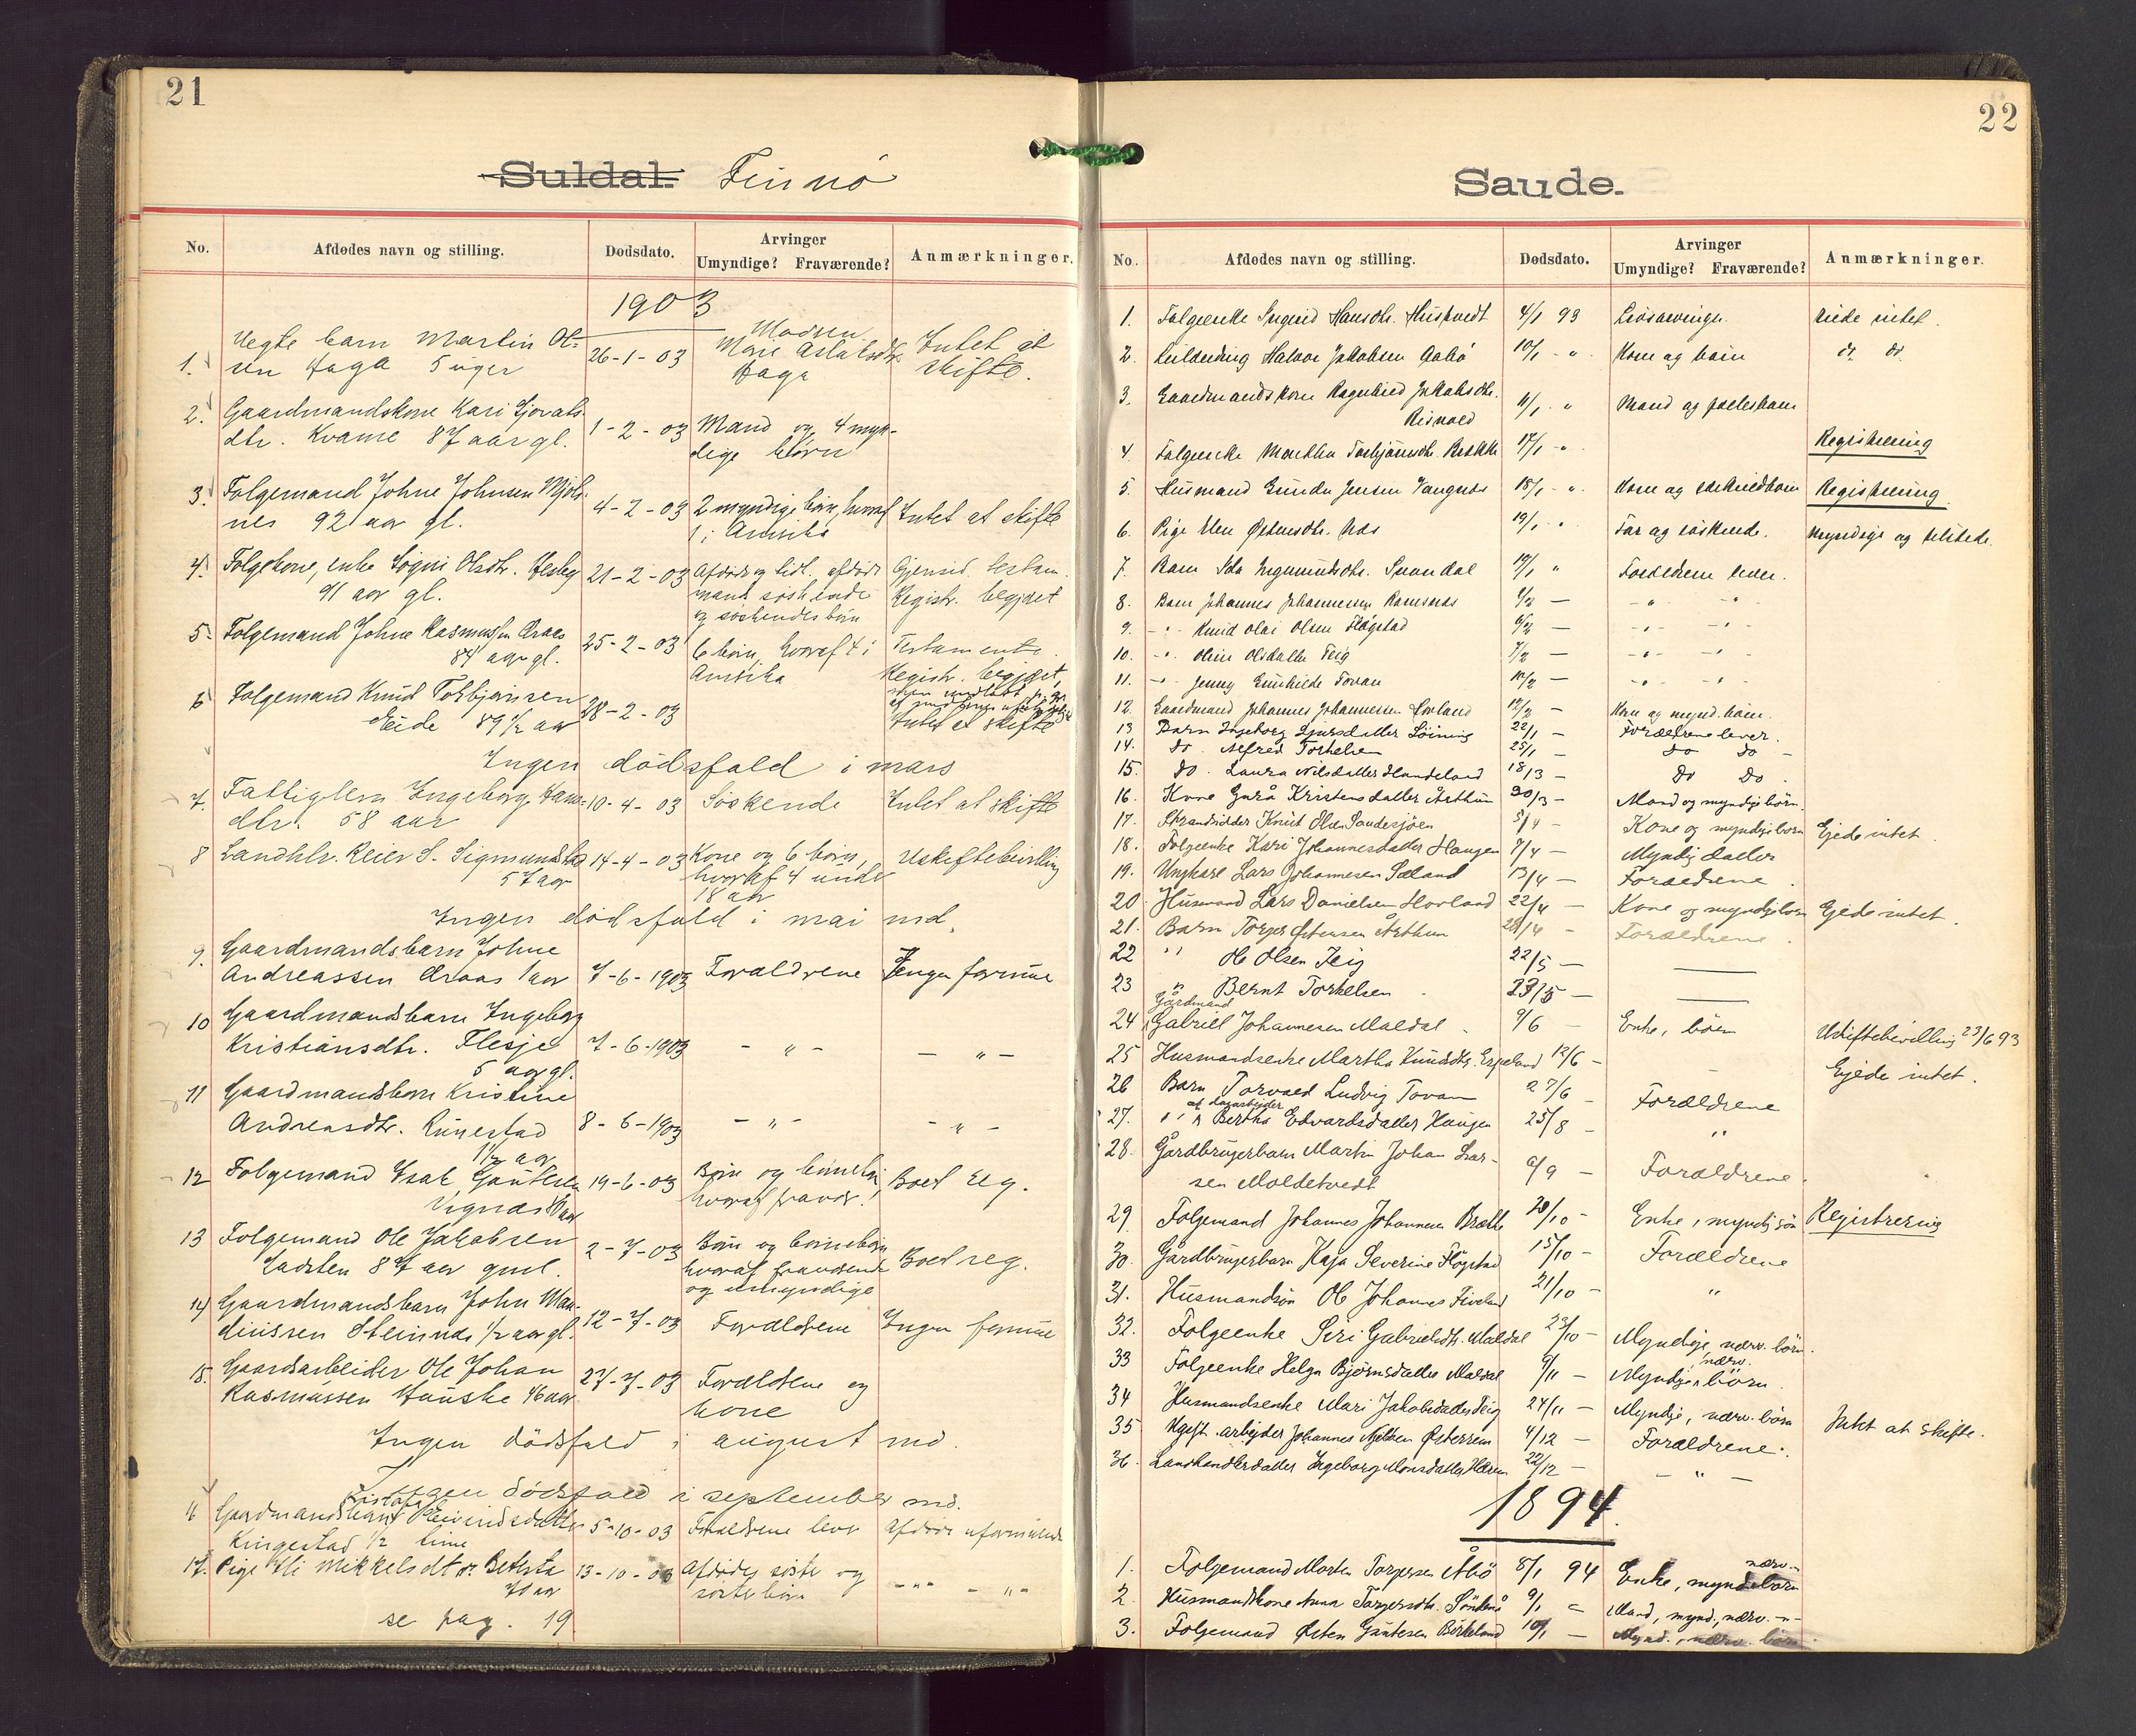 21
Suldal. Finnö
No. Afdødes navn og stilling. Dødsdato. Arvinger Umyndige? Fraværende? Anmærkninger.
1903
1. Uegte barn Martin Ol- 26-1-03 Moderen Intet at
sen Haga 5 uger Haga skifte.
2. Gaardmandskone Kari 1-2-03 Mand og 4 myn-
dtr. Kvame 87 aar gl. dige börn
3. Folgemand Johne Johnsen 4-2-03 2 myndige börn, hvoraf Intet at skifte
nes 92 aar gl. 1 i Amerika
4. Folgekone, enke Olsdtr. Hesby 21-2-03 Afdøde og tidl. afdøde Gjensid. testam.
91 aar gl. mands søskende Registr. begjæret
og søskendes börn
5. Folgemand Johne Rasmussen 25-2-03 6 börn, hvoraf 4 i Testamente.
84 aar gl. Amerika Registr. begjæret,
6 Folgemand Knud Torbjørnsen 28-2-03
Eide 89 1/2 aar Intet at skifte
Ingen dödsfald i mars
7. Fattiglem Ingeborg Hans- 10-4-03 Søskende Intet at skifte
dtr. 58 aar
8 Landhlr. Reier S. Sigmundstad 14-4-03 Kone og 6 børn, Uskiftebevilling
57 aar hvoraf 4 under
18 aar
Ingen dödsfald i mai md.
9. Gaardmandsbarn Johne
Andreassen 1 aar 7-6-1903 Forældrene Ingen formue
10 Gaardmandsbarn Ingeborg
Kristiansdtr. Flesje 7-6-1903 - " - - " -
5 aar gl.
11 Gaardmandsbarn Kristine
Andreasdtr. Runestad 8-6-1903 - " - - " -
1 1/2 aar
12 Folgemand Isak 19-6-03 Børn og børnebørn Boet reg.
13 Folgemand Ole Jakobsen 2-7-03 Børn og børnebørn Boet reg.
Ladsten 87 aar gml. hvoraf fraværende
og umyndige
14 Gaardmandsbarn John Mau-
ritssen Steinnes 1/2 aar gl. 12-7-03 Forældrene Ingen formue
15. Gaardsarbeider Ole Johan 27-7-03 Forældrene og
Rasmussen Hauske 46 aar kone
Ingen dödsfald i august md.
Ingen dödsfald i september md.
16 Gaardmandsbarn Eivindsdatter 5-10-03 Forældrene lever Afdøde uformuende
Ringestad 1/2 time
17. Pige Mikkelsdtr. 13-10-03 Afdødes søster og - " - - " -
70 aar søsterbörn
se pag. 19
22
Saude.
No. Afdødes navn og stilling. Dødsdato. Arvinger Umyndige? Fraværende? Anmærkninger.
1. Folgeenke Ingerid Hansdtr. Huskvedt 4/1 93 Livsarvinger. Eiede intet.
2. Leilænding Halvor Jakobsen Aabö 10/1 - " Kone og børn do do.
3. Gaardmandskone Ragnhild Jakobsdtr. 11/1 - " Mand og fællesbarn
Risvold
4. Folgeenke Martha Torbjörnsdtr. 17/1 - " Registrering
5. Husmand Gunder Jensen Vangsnes 18/1 - " Kone og særkuldbarn Registrering
6. Pige Elen Østensdtr. Næs 19/1 - " Far og søskende. Myndige og tilstede.
7. Barn Ida Ingmundsdtr. Svandal 19/1 " Forældrene lever.
8. Barn Johannes Johannesen Ramsnæs 4/2 — - " - - " -
9. - " - Knud Olai Olsen Fløgstad 6/2 — - " - - " -
10. - " - Oline Olsdatter Teig 7/2 — - " - - " -
11. - " - Jenny Gunhilde Tovan 10/2 — - " - - " -
12. Gaardmand Johannes Johannessen Hovland 12/2 — Kone og mynd. børn.
13 Barn Ingeborg Sjursdatter Löining 22/1 — Forældrene lever.
14. do. Alfred Torkelsen 25/1 — do do -
15. do. Laura Nilsdatter Handeland 18/3 — do do
16. Kone Guro Kristensdatter Århun 30/3 — Mand og myndige børn.
17. Strandsidder Knut Olsen Saudesjöen 5/4 — Kone og myndige børn Ejede intet.
18. Folgeenke Kari Johannesdatter Haugen 7/4 — Myndig datter
19. Ungkarl Lars Johannesen Sæland 13/4 — Forældrene.
20 Husmand Lars Danielsen Hovland 22/4 — Kone og myndige børn Ejede intet.
21. Barn Torger Østensen Århun 28/4 - Forældrene.
22 " Ole Olsen Teig 22/5 — —
23 " Bernt Torkelsen 23/5 — —
Gårdmand
24 Gabriel Johannesen Maldal 9/6 - Enke, börn Uskiftebevilling 23/6 93
25 Husmandsenke Martha Knudsdtr. Espeland 12/6 - - Ejede intet.
26 Barn Torvald Ludvig Tovan 27/6 - Forældrene
af dagarbejder
27. " " Bertha Edvardsdatter Haugen 25/8 - "
28. Gårdbrugerbarn Martin Johan Lar- 6/9 - Forældrene.
sen Moldetvedt
29. Folgemand Johannes Johannesen Brække 20/10 - Enke, myndig sön Registrering
30. Gårdbrugerbarn Kaja Severine Flögstad 15/10 - Forældrene
31. Husmandsön Ole Johannes Fiveland 21/10 - "
32. Folgeenke Siri Gabrielsdtr. Maldal 23/10 - Myndige, nærv. börn.
33 Folgeenke Helga Bjørnsdatter Maldal 9/11 - Myndige nærv. börn.
34 Husmandsenke Mari Jakobsdatter Teig 24/11 - Myndige, nærv. börn Intet at skifte.
35 Ugift arbejder Johannes Østerrem 4/12 - Forældrene.
36. Landhandlerdatter Ingeborg Monsdatter 22/12 - - " -
1894.
1. Folgemand Morten Torgersen Åbö 8/1 94 Enke, mynd. nærv. börn
2. Husmandskone Anna Torgersdtr. 9/1 = Mand, mynd., nærv. -"-
3. Folgemand Østen Birkeland 10/1 — Mynd., nærv. börn.